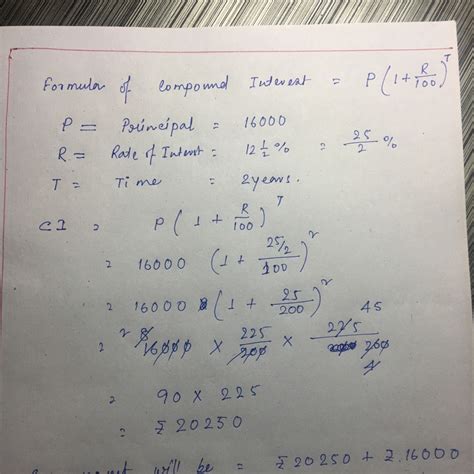 Formula of Compound Interest = P(1 + R/100)^T
P = Principal = 16000
R = Rate of Interest = 12 1/2 % = 25/2 %
T = Time = 2 years.
CI = P(1 + R/100)^T
= 16000 (1 + 25/2/100)^2
= 16000 (1 + 25/200)^2
= 2 8 16000 × 225/200 × 225/200 45 4
= 90 × 225
= ₹20250
will be = ₹20250 + ₹.16000